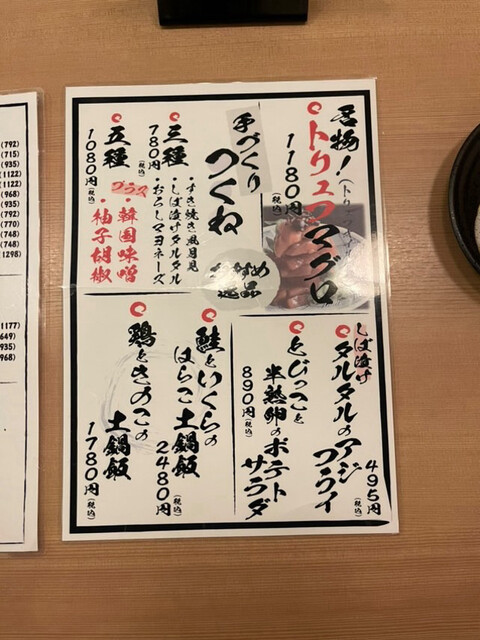 名物!
トリュフマグロ
1180円(税込)
手づくり
つくね
三種
780円(税込)
・すき焼き風月見
・しば漬けタルタル
・おろしマヨネーズ
五種
1080円(税込)
プラス
・韓国味噌
・柚子胡椒
逸品
しば漬け
タルタルのアジフライ
495円(税込)
とびっこと
半熟卵のポテトサラダ
890円(税込)
鮭といくらの
はらこ土鍋飯
2480円(税込)
鶏ときのこの
土鍋飯
1780円(税込)
(792)
(715)
(935)
(1122)
(1122)
(968)
(935)
(792)
(770)
(748)
(748)
(1298)
(1177)
(649)
(935)
(968)